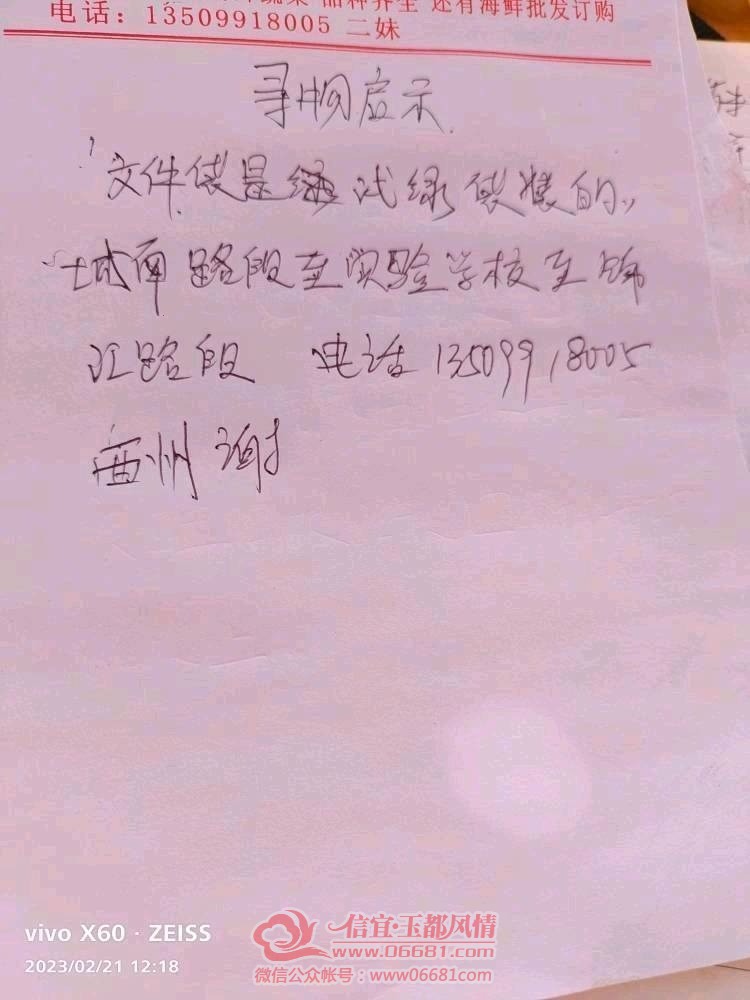 品种齐全 还有海鲜批发订购
电话：13509918005 二妹
寻物启示
文件袋是浅绿袋装的
城南路段至实验学校至锦
江路段 电话 13509918005
西州 谢
vivo X60 · ZEISS
2023/02/21 12:18
信宜·玉都风情
www.06681.com
微信公众帐号：www06681com